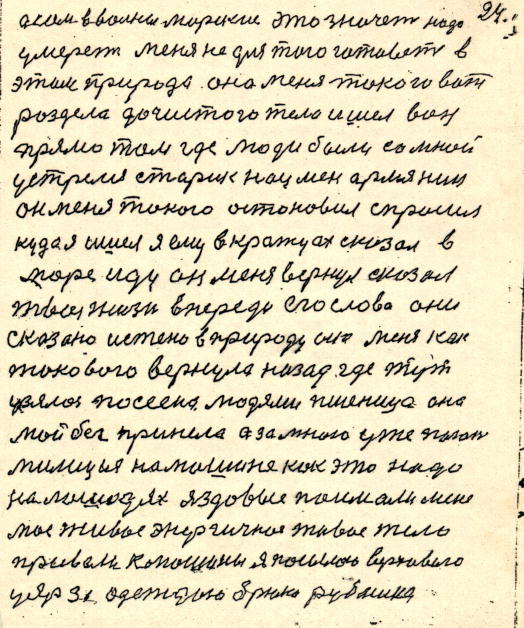 24.
асам в волны морские это значет надо
умерет меня не для того готовет в
этом природа она меня токого вот
роздела дочистого тела ишел вон
прямо там где люди были самной
устрелся старик нацмен армянин
он меня токого остоновил спросил
куда я ишел я ему вкратцах сказал в
море иду он меня вернул сказал
твоя жизн впереди его слова они
сказано истено в природу она меня как
токового вернула назад где тут
взялос посеена людями пшеница она
мой бег принела а замного уже погон
милицыя на машине как это надо
на лошодях яздовые поимали мене
мое живое энергичное живое тело
привели к машины я посылаю верхового
за одеждою брюки рубашка